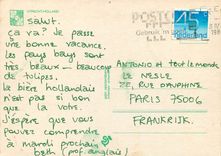 UTRECHT-HOLLAND
salut.
ça va? Je passe
une bonne vacance.
les pays bays sont
très beaux — beaucoup
de tulipes.
la bière hollandais
n'est pas si bon
que la votre
J'espère que vous
pouvez comprendre
à mardi prochain
beth (prof. anglais)
POSTCODE
45
Gebruik
nederland
ANTONIO et tout le monde
LE NESLE
22, RUE DAUPHINE
PARIS 75006
FRANKRIJK.